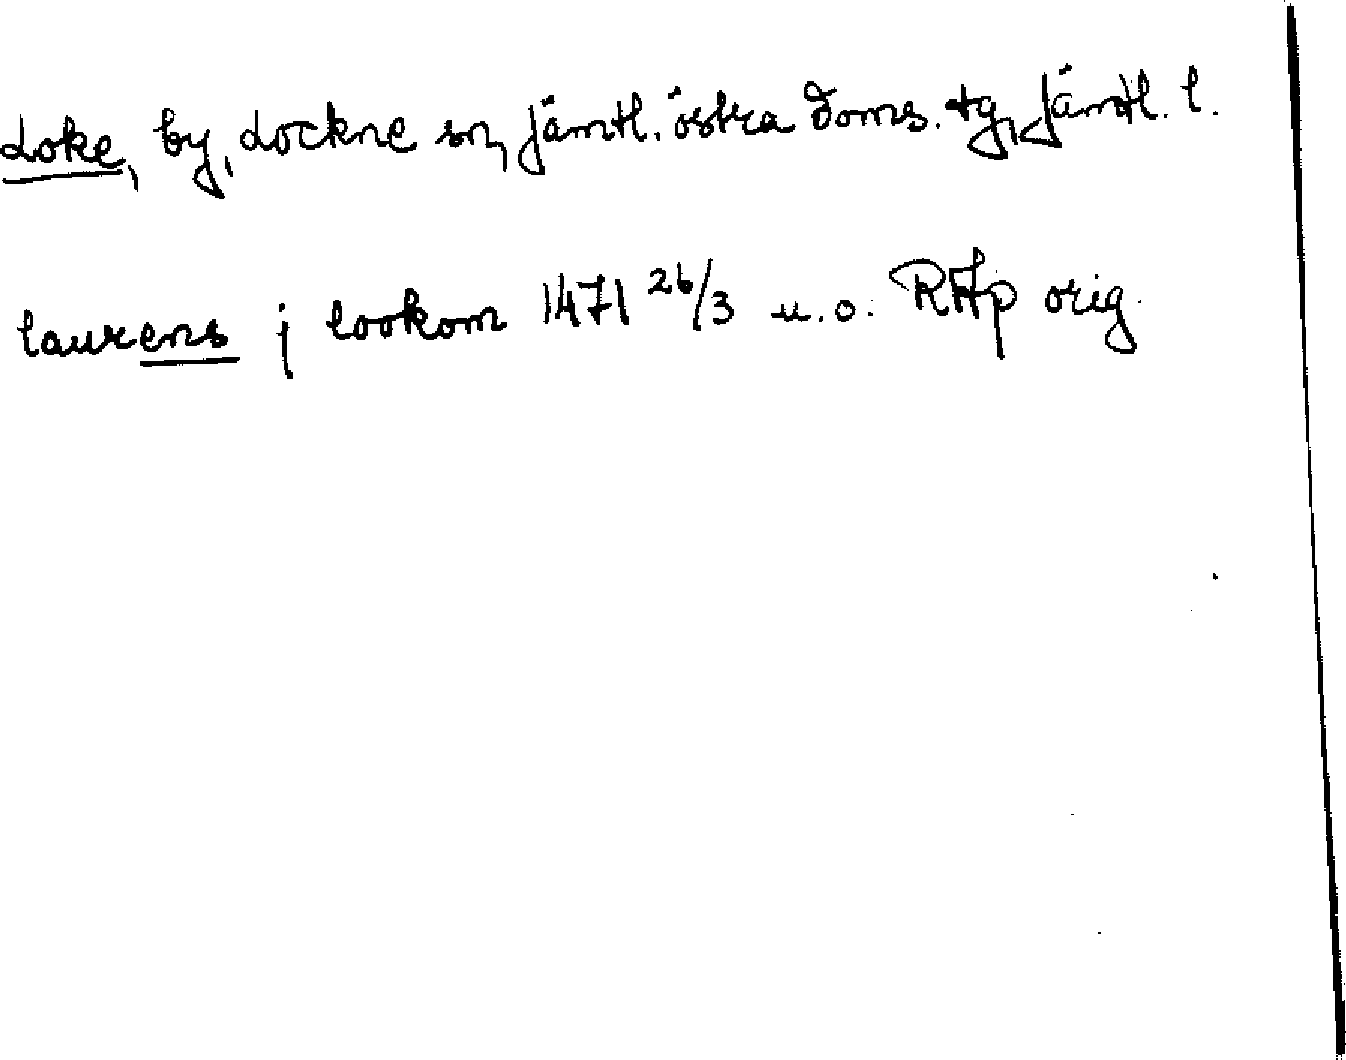 Loke, by, Lockne sn, Jämtl. östra doms. tg, Jämtl. l.
laurens j lookom 1471 26/3 u.o. RAp orig.